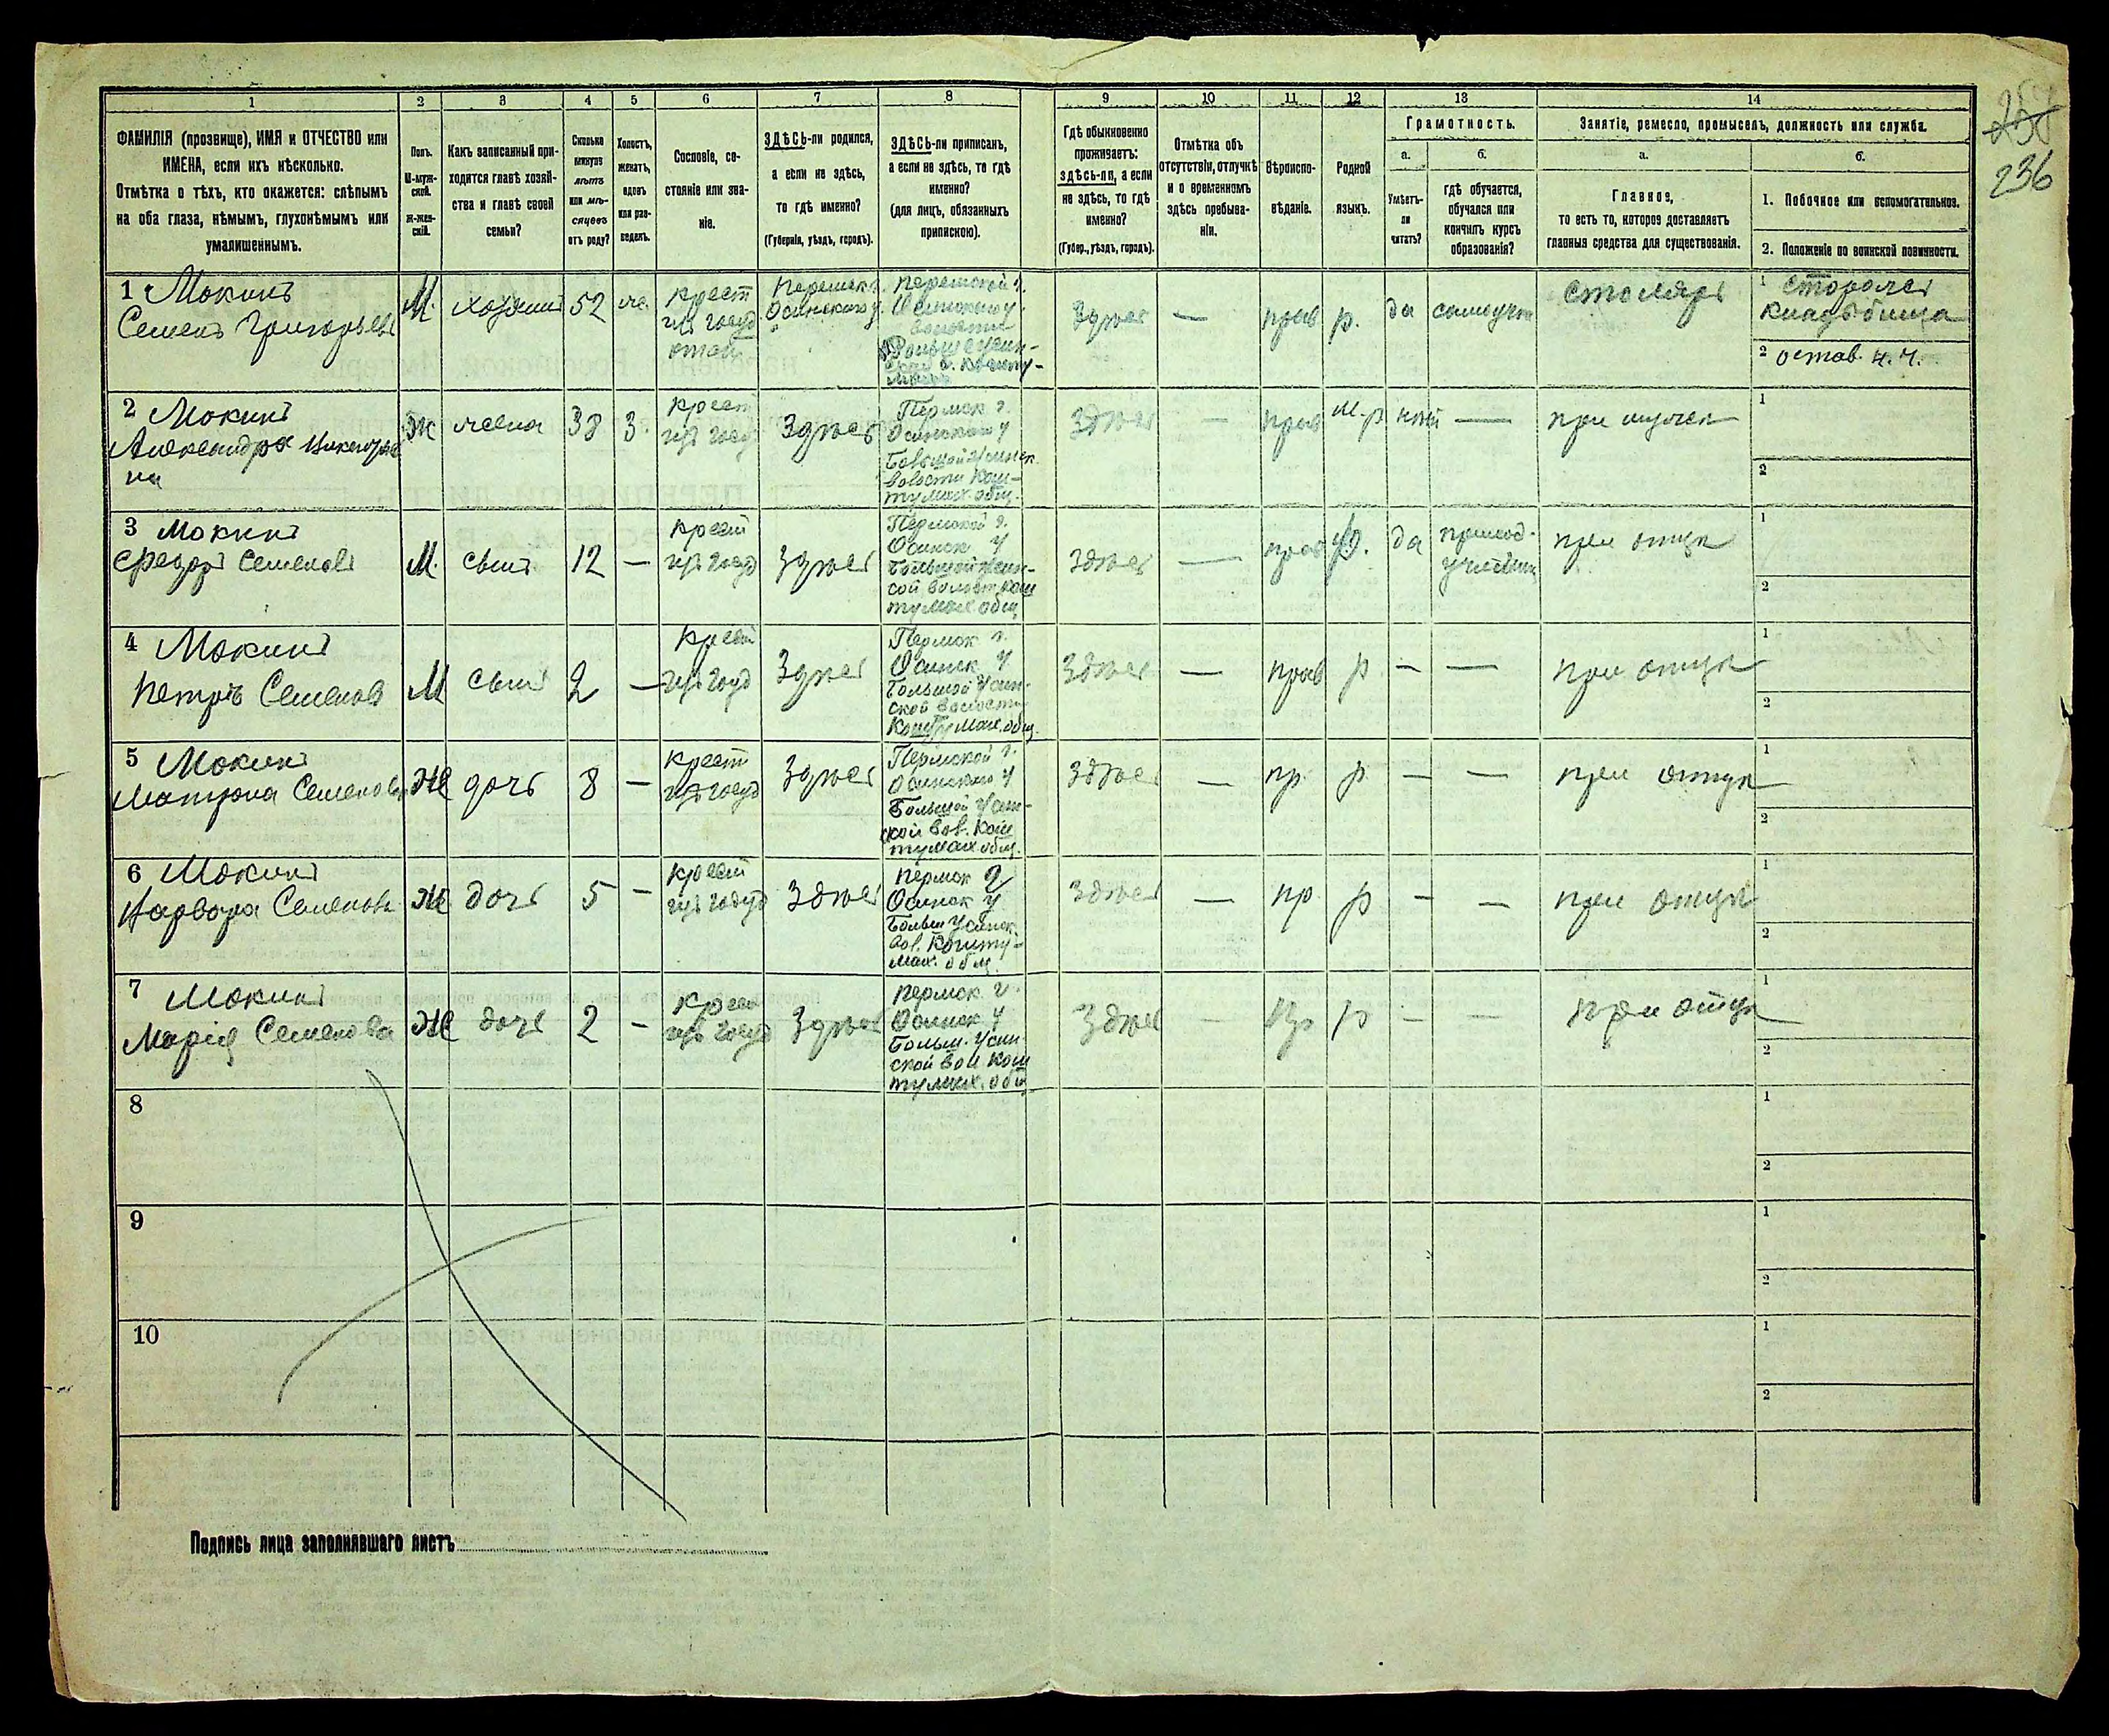 1 2 3 4 5 6 7 8 9 10 11 12 13 14
ФАМИЛІЯ (прозвище), ИМЯ и ОТЧЕСТВО или
ИМЕНА, если ихъ нѣсколько.
Отмѣтка о тѣхъ, кто окажется: слѣпымъ
на оба глаза, нѣмымъ, глухонѣмымъ или
умалишеннымъ.
Полъ.
М-муж-
ской.
Ж-жен-
скій.
Какъ записанный при-
ходится главѣ хозяй-
ства и главѣ своей
семьи?
Сколько
минуло
лѣтъ
или мѣ-
сяцевъ
отъ роду?
Холостъ,
женатъ,
вдовъ
или раз-
веденъ.
Сословіе, со-
стояніе или зва-
ніе.
ЗДѢСЬ-ли родился,
а если не здѣсь,
то гдѣ именно?
(Губернія, уѣздъ, городъ).
ЗДѢСЬ-ли приписанъ,
а если не здѣсь, то гдѣ
именно?
(для лицъ, обязанныхъ
припискою).
Гдѣ обыкновенно
проживаетъ:
здѣсь-ли, а если
не здѣсь, то гдѣ
именно?
(Губер., уѣздъ, городъ).
Отмѣтка объ
отсутствіи, отлучкѣ
и о временномъ
здѣсь пребыва-
ніи.
Вѣроиспо-
вѣданіе.
Родной
языкъ.
Грамотность.
а.
Умѣетъ-
ли
читать?
б.
гдѣ обучается,
обучался или
кончилъ курсъ
образованія?
Занятіе, ремесло, промыселъ, должность или служба.
а.
Главное,
то есть то, которое доставляетъ
главныя средства для существованія.
б.
1. Побочное или вспомогательное.
2. Положеніе по воинской повинности.
236
1 Мокинъ
Семенъ Григорьевъ
М.
хозяинъ
52
же.
Крест
изъ госуд
Пермск г.
Осинскаго у.
Пермской г.
Осинскаго у.
волости
Здѣсь
—
прав
р.
да
самоучка
столяръ
1 сторожъ
кладбища
2 остав. н. ч.
2 Мокина
Александра
на
Ж
жена
38
З.
Крест
изъ госуд
Здѣсь
Пермск г.
Осинскаго у
Большой Усинск.
волости Кош-
тумах. общ.
Здѣсь
—
прав
р
—
при мужѣ
1
2
3 Мокинъ
Федоръ Семеновъ
М.
сынъ
12
—
Крест
изъ госуд
Здѣсь
Пермской г.
Осинск у
Большой Усин-
ской волост. Кош
тумах общ
Здѣсь
—
прав
р.
да
приход.
училищѣ
при отцѣ
1
2
4 Мокинъ
Петръ Семеновъ
М
сынъ
2
—
Крест
изъ госуд
Здѣсь
Пермск г.
Осинск у
Большой Усин-
ской волости
Коштумах. общ.
Здѣсь
—
прав
р
—
—
при отцѣ
1
2
5 Мокина
Матрона Семенова
Ж
дочь
8
—
Крест
изъ госуд
Здѣсь
Пермской г.
Осинскаго у
Большой Усин-
ской вол. Кош
тумах общ.
Здѣсь
—
пр.
р.
—
—
при отцѣ
1
2
6 Мокина
Варвара Семенова
Ж
дочь
5
—
Крест
изъ госуд
Здѣсь
Пермск г
Осинск у
Больш Усинск.
вол. Кошту-
мах. общ
Здѣсь
—
пр.
р
—
—
при отцѣ
1
2
7 Мокина
Марія Семенова
Ж
дочь
2
—
Крест
изъ госуд
Здѣсь
Пермск. г.
Осинск у
Больш. Усин
ской вол Кош
тумах. общ
Здѣсь
—
пр
р
—
—
при отцѣ
1
2
8
1
2
9
1
2
10
1
2
Подпись лица заполнявшаго листъ